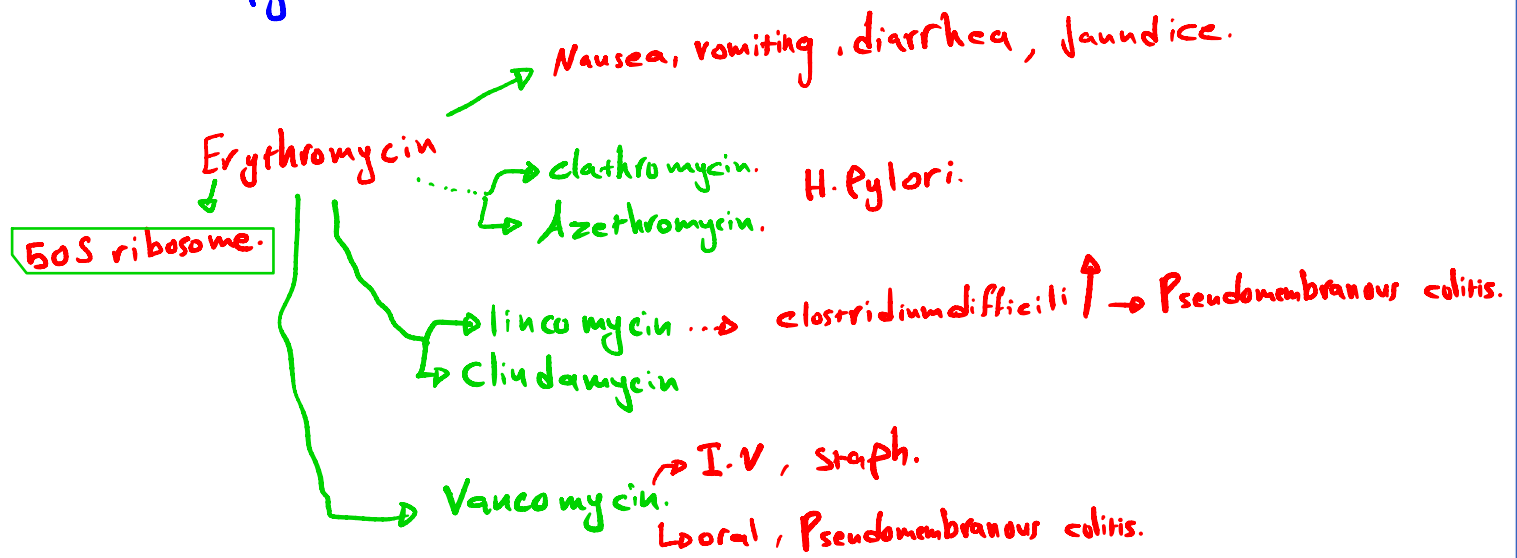 Nausea, vomiting, diarrhea, Jaundice.
Erythromycin
clathromycin.
H. Pylori.
Azethromycin.
50S ribosome.
lincomycin ... clostridium difficili → Pseudomembranous colitis.
Clindamycin
I.V, staph.
Vancomycin.
oral, Pseudomembranous colitis.